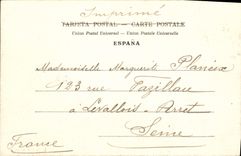 Imprimé
TARJETA POSTAL — CARTE POSTALE
Union Postal Universal — Union Postale Universelle
ESPAÑA
Mademoiselle Marguerite Planeix
123 rue Vazillau
à Levallois-Perret
Seine
(France)